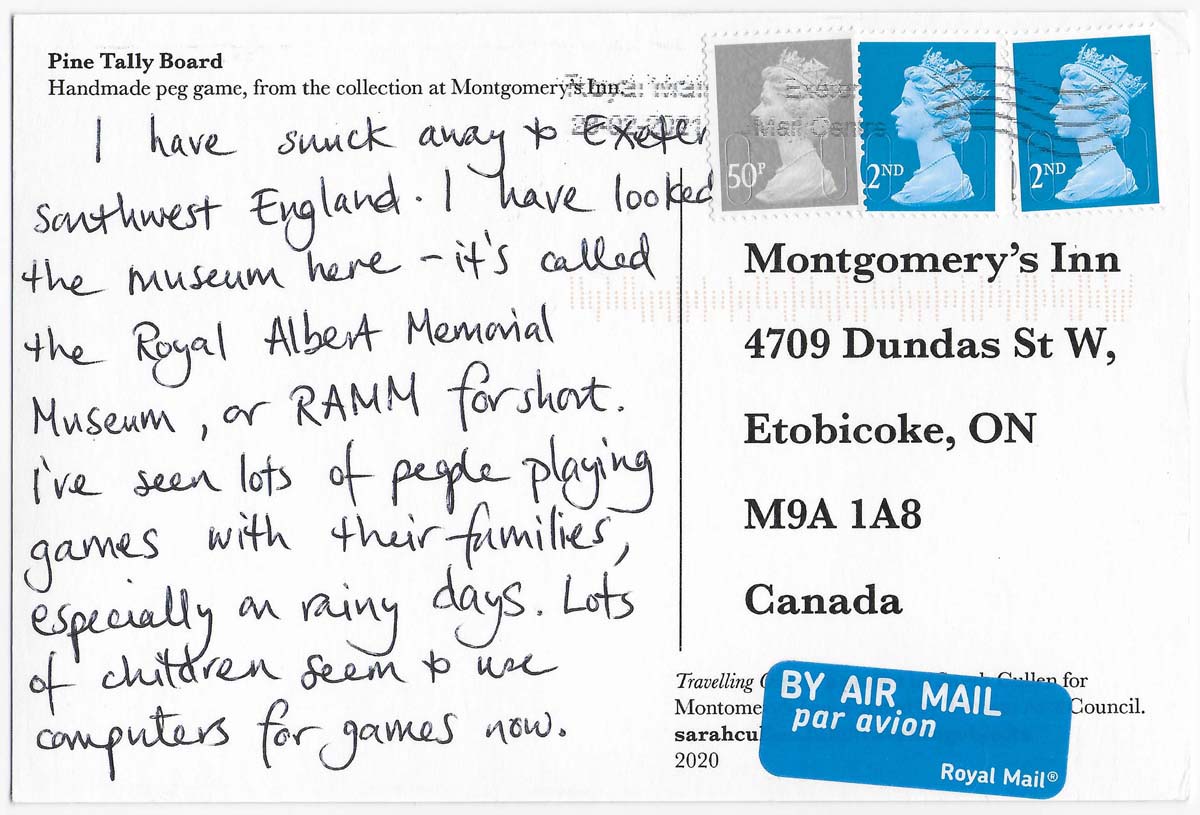 Pine Tally Board
Handmade peg game, from the collection at Montgomery's Inn.
I have snuck away to Exeter
southwest England. I have looked
the museum here – it's called
the Royal Albert Memorial
Museum, or RAMM for short.
I've seen lots of people playing
games with their families,
especially on rainy days. Lots
of children seem to use
computers for games now.
Royal Mail
Exeter
Mail Centre
50P
2ND
2ND
Montgomery's Inn
4709 Dundas St W,
Etobicoke, ON
M9A 1A8
Canada
Travelling Cullen for
Montome Council.
sarahcu
2020
BY AIR MAIL
par avion
Royal Mail®